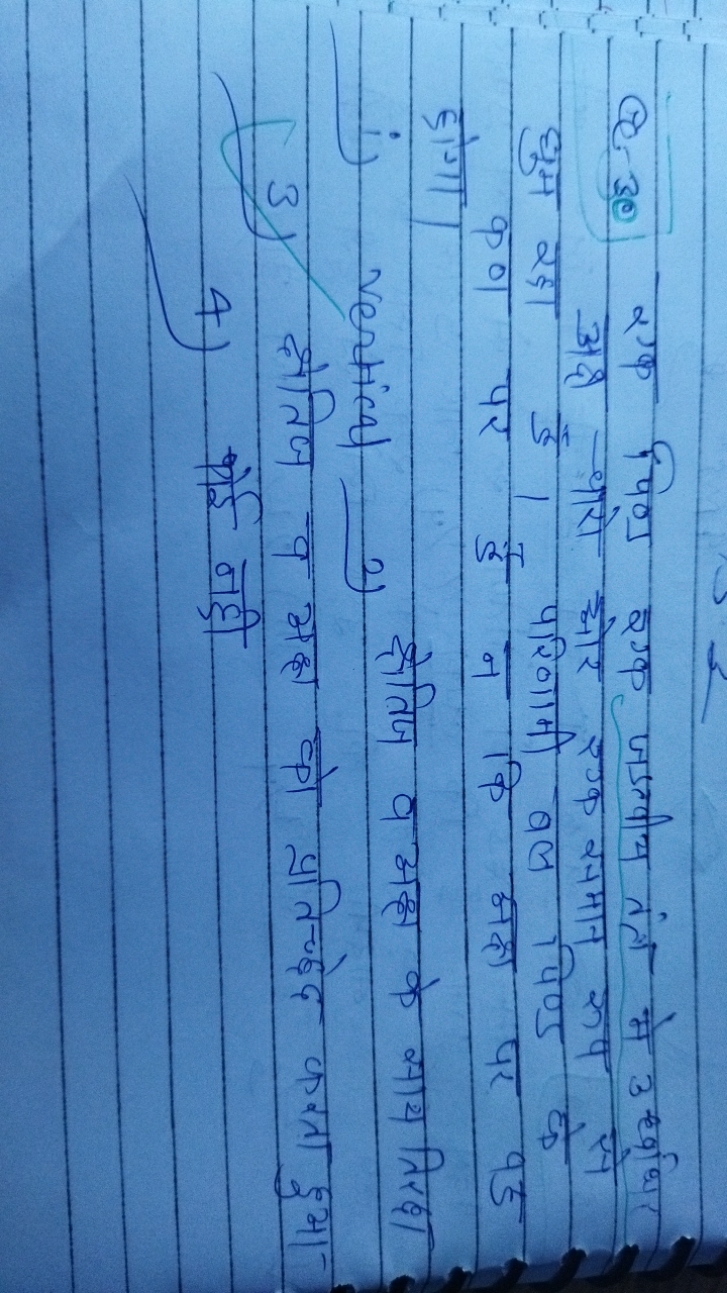 Q.30 एक पिण्ड एक जड़त्वीय तंत्र मे उर्ध्वाधर
अक्ष चारो ओर एक समान रूप से
घुम रहा है। परिणामी बल पिण्ड के
कण पर है न कि अक्ष पर वह
होगा।
1) vertical 2) क्षैतिज व अक्ष के साथ तिरछा
3) क्षैतिज व अक्ष को प्रतिच्छेद करता हुआ
4) कोई नही